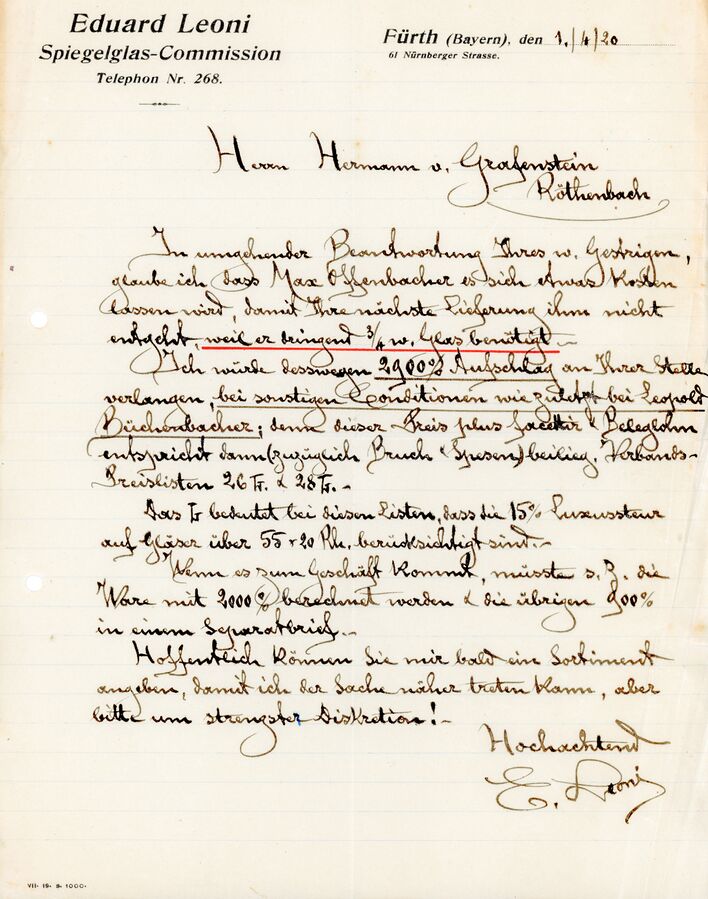 Eduard Leoni
Spiegelglas-Commission
Telephon Nr. 268.
Fürth (Bayern), den 1./4/20
61 Nürnberger Strasse.
Herrn Hermann v. Grafenstein
Röthenbach
In umgehender Beantwortung Ihres w. Gestrigen,
glaube ich dass Max Offenbacher es sich etwas kosten
lassen wird, damit Ihre nächste Lieferung ihm nicht
entgeht, weil er dringend 3/4 w. Glas benötigt.-
Ich würde desswegen 2900% Aufschlag an Ihrer Stelle
verlangen, bei sonstigen Conditionen wie zuletzt bei Leopold
Büchenbacher; denn dieser Preis plus facettir & Beleglohn
entspricht dann (zuzüglich Bruch & Spesen) beilieg. Verbands-
Preislisten 26 & 28 .-
Das bedeutet bei diesen Listen, dass die 15% Luxussteur
auf Gläser über 55 + 20 Rh. berücksichtigt sind.-
Wenn es zum Geschäft kommt, müsste s. Z. die
Ware mit 2000% berechnet werden & die übrigen 900%
in einem Separatbrief.-
Hoffentlich können Sie mir bald ein Sortiment
angeben, damit ich der Sache näher treten kann, aber
bitte um strengster Diskretion!-
Hochachtend
E. Leoni
VII. 19. 8. 1000.